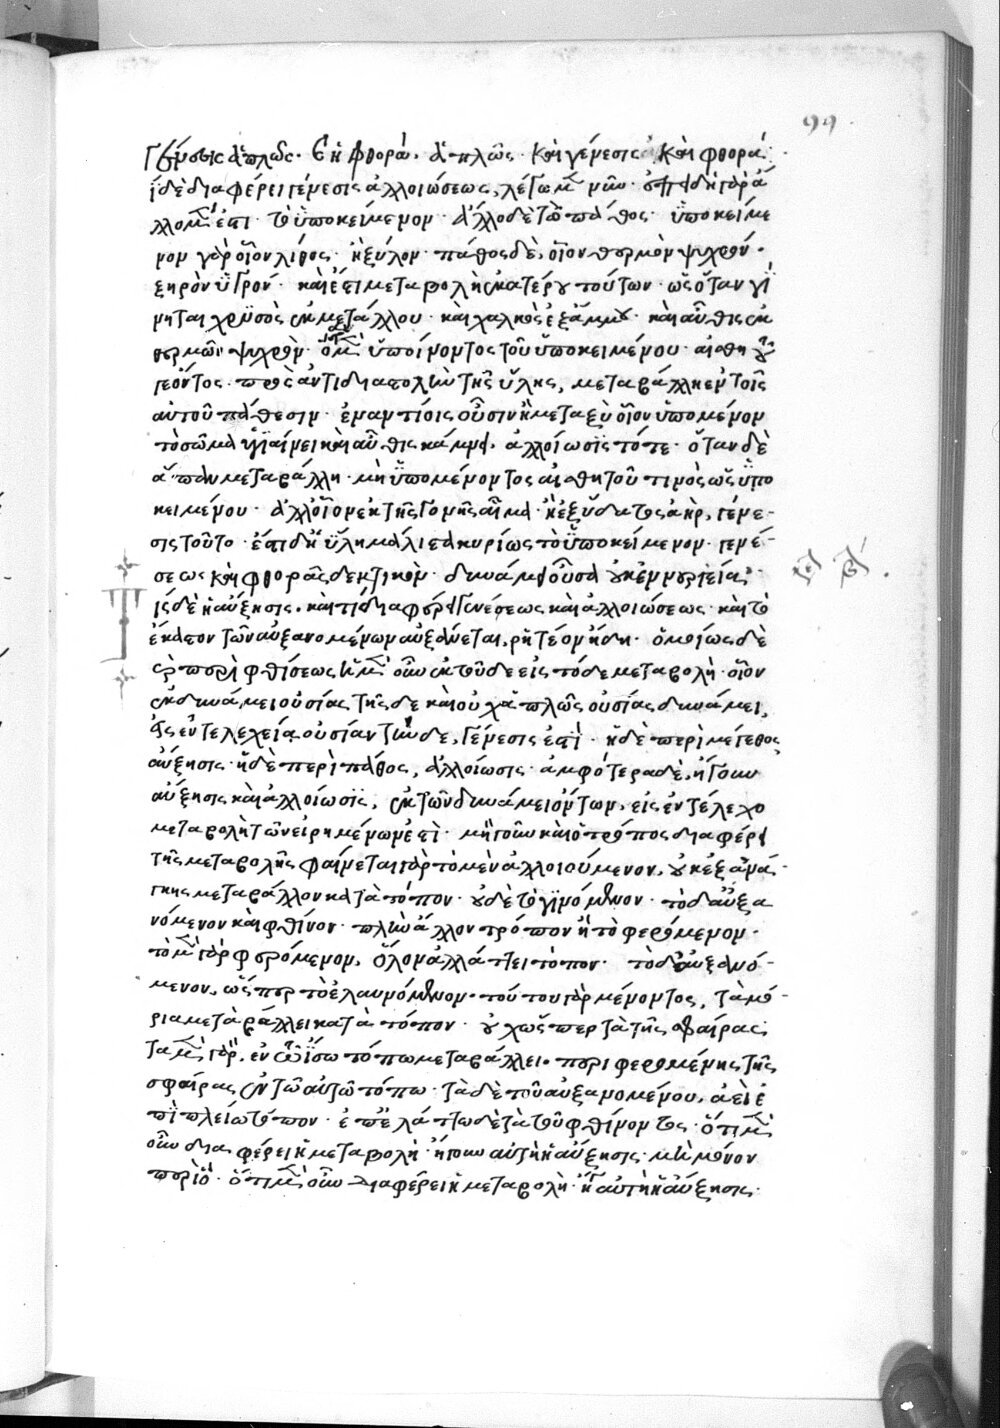 99
γένεσις ἁπλῶς· ἐ ἡ φθορὰ· ἁπλῶς· καὶ γένεσις καὶ φθορά·
τί δὲ διαφέρει γένεσις ἀλλοιώσεως, λέγωμεν νῦν· ἐπειδὴ γὰρ ἄ
λλο μέν ἐστι τὸ ὑποκείμενον· ἄλλο δὲ τὸ πάθος· ὑποκείμε
νον γὰρ οἷον λίθος· ἢ ξύλον· πάθος δὲ, οἷον θερμὸν ψυχρόν·
ξηρὸν ὑγρόν· καὶ ἔστι μεταβολὴ ἑκατέρου τούτων· ὡς ὅταν γί
νηται χρυσὸς ἐκ μετάλλου· καὶ χαλκὸς ἐξ ἄμμου· καὶ αὖθις ἐκ
θερμοῦ ψυχρὸν· ὅταν μὲν ὑπομένοντος τοῦ ὑποκειμένου· αἰσθητοῦ
γε ὄντος· πρὸς ἀντιδιαστολὴν τῆς ὕλης, μεταβάλλη ἐν τοῖς
αὐτοῦ πάθεσιν· ἐναντίοις οὖσιν ἢ μεταξὺ οἷον ὑπομένον
τὸ σῶμα ὑγιαίνει καὶ αὖθις κάμνει· ἀλλοίωσις τότε· ὅταν δὲ
ἅπαν μεταβάλλη· μὴ ὑπομένοντος αἰσθητοῦ τινὸς ὡς ὑπο
κειμένου· ἀλλ' οἷον ἐκ τῆς γονῆς αἷμα· ἢ ἐξ ὕδατος ἀὴρ, γένε-
σις τοῦτο· ἔστι δὴ ὕλη μάλιστα κυρίως τὸ ὑποκείμενον· γενέ-
σεως καὶ φθορᾶς δεκτικὸν· δυνάμει οὖσα οὐκ ἐνεργεία·
Τίς δὲ ἡ αὔξησις· καὶ τί διαφέρει γενέσεως καὶ ἀλλοιώσεως· καὶ τὸ
ἕκαστον τῶν αὐξανομένων αὐξάνεται, ῥητέον ἤδη· ὁμοίως δὲ
περὶ φθίσεως ἡ μὲν οὖν ἐκ τοῦδε εἰς τόδε μεταβολὴ· οἷον
ἐκ δυνάμει οὐσίας τῆσδε καὶ οὐχ ἁπλῶς οὐσίας δυνάμει,
εἰς ἐντελεχεία οὐσίαν τήνδε, γένεσις ἐστὶ· ἡ δὲ περὶ μέγεθος
αὔξησις· ἡ δὲ περὶ πάθος, ἀλλοίωσις· ἀμφότερα δὲ, ἤγουν
αὔξησις καὶ ἀλλοίωσις, ἐκ τῶν δυνάμει ὄντων, εἰς ἐντελέχο
μεταβολὴ τῶν εἰρημένων ἐστὶ· μὴ γοῦν καὶ ὁ τρόπος διαφέρει
τῆς μεταβολῆς φαίνεται γὰρ τὸ μὲν ἀλλοιούμενον, οὐκ ἐξ ἀνά-
γκης μεταβάλλον κατὰ τόπον· οὐδὲ τὸ γινόμενον· τὸ δ' αὐξα
νόμενον καὶ φθίνον· πλὴν ἄλλον τρόπον ἢ τὸ φερόμενον·
τὸ μὲν γὰρ φερόμενον, ὅλον ἀλλάττει τόπον· τὸ δ' αὐξανό-
μενον, ὥσπερ τὸ ἐλαυνόμενον· τούτου γὰρ μένοντος, τὰ μό-
ρια μεταβάλλει κατὰ τόπον· οὐχ ὥσπερ τὰ τῆς σφαίρας·
τὰ μὲν γὰρ, ἐν τῶ ἴσω τόπω μεταβάλλει· περιφερομένης τῆς
σφαίρας ἐν τῶ αὐτῶ τόπω· τὰ δὲ τοῦ αὐξανομένου, ἀεὶ ἐ
πὶ πλείω τόπον· ἐπ' ἐλάττω δὲ τὰ τοῦ φθίνοντος· ὅτι μὲν
οὖν διαφέρει ἡ μεταβολὴ· ἤγουν αὐτὴ ἡ αὔξησις· μὴ μόνον
περὶ ὃ· ὅτι μὲν οὖν διαφέρει ἡ μεταβολὴ· ἤγουν αὐτὴ ἡ αὔξησις·